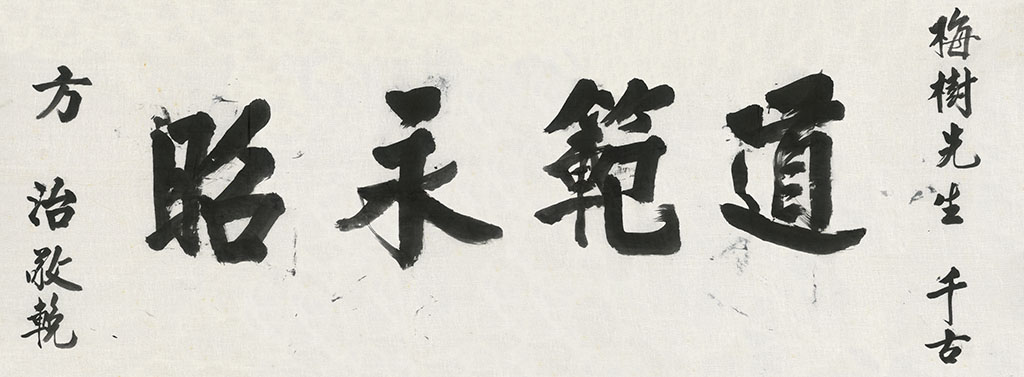 梅樹先生 千古
道範永昭
方 治敬輓